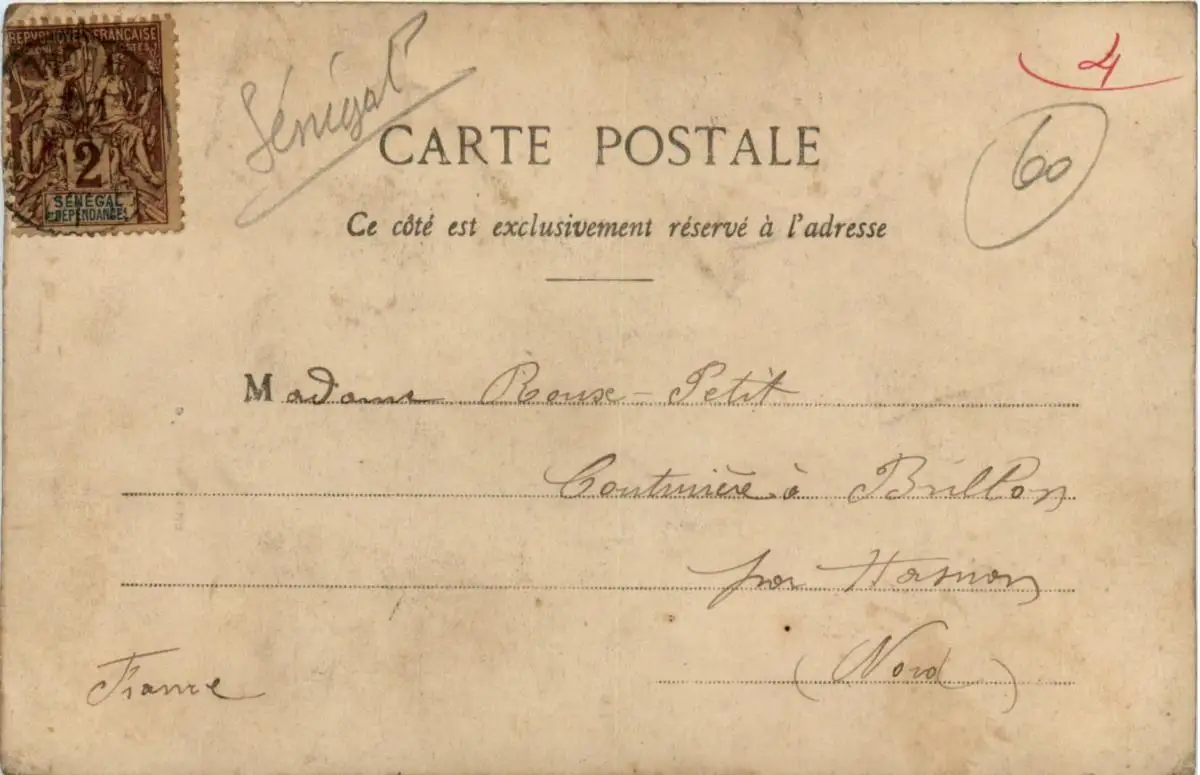 REPUBLIQUE FRANÇAISE
COLONIES POSTES
2
SÉNÉGAL
ET DÉPENDANCES
Sénégal
4
60
CARTE POSTALE
Ce côté est exclusivement réservé à l'adresse
Madame Roux-Petit
Couturière à Brillon
par Hasnon
(Nord)
France